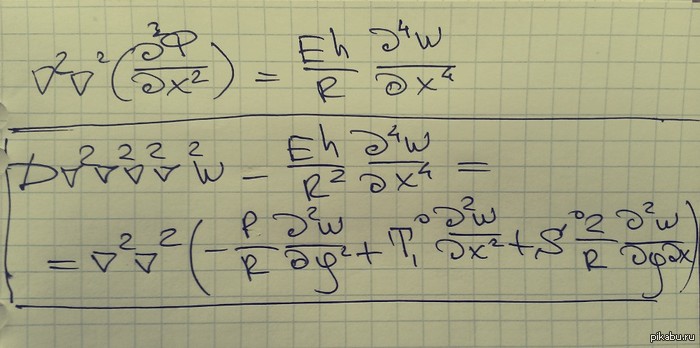 ∇²∇²(∂³φ/∂x²) = Eh/R ∂⁴w/∂x⁴
D∇²∇²∇²∇²w − Eh/R² ∂⁴w/∂x⁴ =
= ∇²∇²(−P/R ∂²w/∂y² + T₁° ∂²w/∂x² + S° 2/R ∂²w/∂y∂x)
pikabu.ru